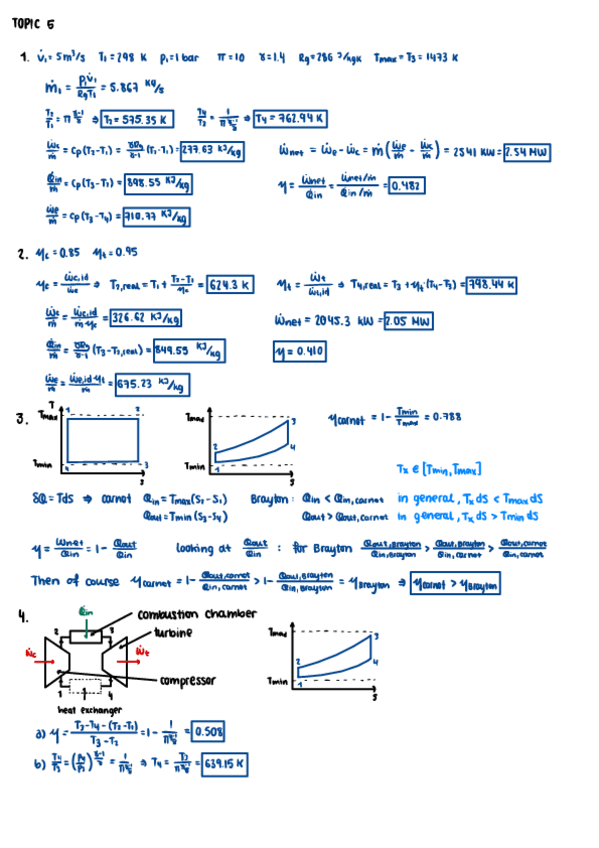 TOPIC 5
1. V̇₁ = 5 m³/s T₁ = 298 K p₁ = 1 bar π = 10 γ = 1.4 Rg = 286 J/kgK Tmax = T₃ = 1473 K
ṁ₁ = p₁V̇₁/RgT₁ = 5.867 kg/s
T₂/T₁ = π^(γ-1/γ) ⇒ T₂ = 575.35 K T₄/T₃ = 1/π^(γ-1/γ) ⇒ T₄ = 762.94 K
Ẇc/ṁ = cp(T₂-T₁) = γRg/γ-1 (T₂-T₁) = 277.63 KJ/kg Ẇnet = Ẇe - Ẇc = ṁ(Ẇe/ṁ - Ẇc/ṁ) = 2541 KW = 2.54 MW
Q̇in/ṁ = cp(T₃-T₂) = 898.55 KJ/kg η = Ẇnet/Q̇in = Ẇnet/ṁ / Q̇in/ṁ = 0.482
Ẇe/ṁ = cp(T₃-T₄) = 710.77 KJ/kg
2. ηc = 0.85 ηt = 0.95
ηc = Ẇc,id/Ẇc ⇒ T₂,real = T₁ + T₂-T₁/ηc = 624.3 K ηt = Ẇt/Ẇt,id ⇒ T₄,real = T₃ + ηt·(T₄-T₃) = 798.44 K
Ẇc/ṁ = Ẇc,id/ṁ ηc = 326.62 KJ/kg Ẇnet = 2045.3 kW = 2.05 MW
Q̇in/ṁ = γRg/γ-1 (T₃-T₂,real) = 849.55 KJ/kg η = 0.410
Ẇe/ṁ = Ẇe,id·ηt/ṁ = 675.23 KJ/kg
3. T Tmax 1 2 Tmin 4 3 S
Tmax 2 3 4 Tmin 1 S
ηcarnot = 1 - Tmin/Tmax = 0.788
Tx ∈ [Tmin, Tmax]
δQ = Tds ⇒ carnot Qin = Tmax(S₂-S₁) Brayton: Qin < Qin,carnot in general, Tx dS < Tmax dS
Qout = Tmin(S₃-S₄) Qout > Qout,carnot in general, Tx dS > Tmin dS
η = Wnet/Qin = 1 - Qout/Qin looking at Qout/Qin : for Brayton Qout,Brayton/Qin,Brayton > Qout,Brayton/Qin,carnot > Qout,carnot/Qin,carnot
Then of course ηcarnot = 1 - Qout,carnot/Qin,carnot > 1 - Qout,Brayton/Qin,Brayton = ηBrayton ⇒ ηcarnot > ηBrayton
4. Q̇in combustion chamber
2 3 turbine
Ẇc Ẇt
compressor
1 4
heat exchanger
Tmax 2 3 4 Tmin 1 S
a) η = T₃-T₄-(T₂-T₁)/T₃-T₂ = 1 - 1/π^(γ-1/γ) = 0.508
b) T₄/T₃ = (p₄/p₃)^(γ-1/γ) = 1/π^(γ-1/γ) ⇒ T₄ = T₃/π^(γ-1/γ) = 639.15 K